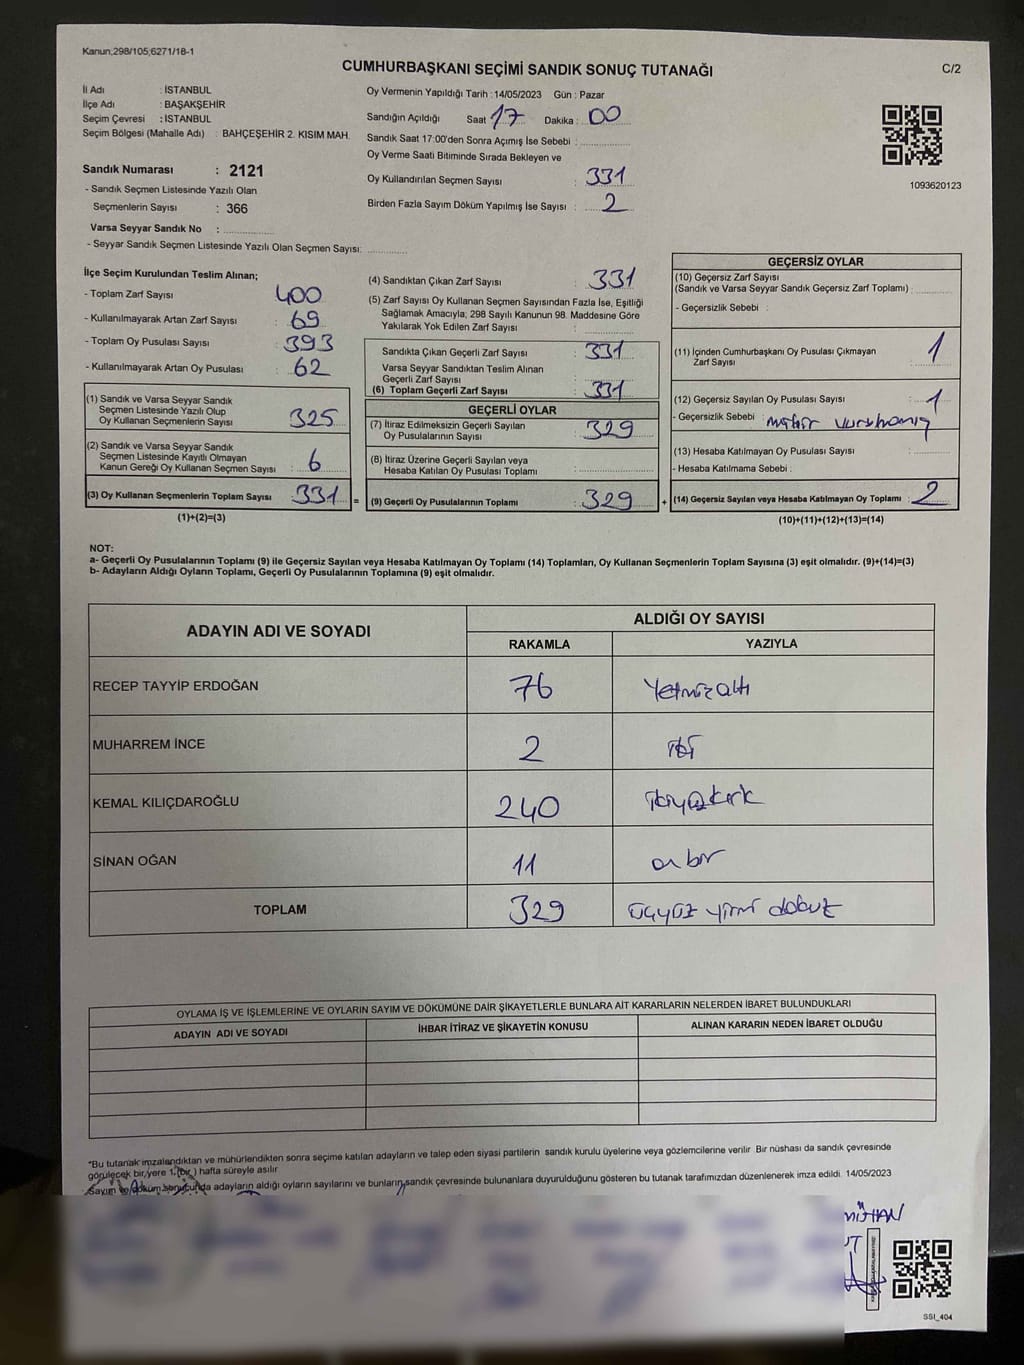 Kanun;298/105;6271/18-1
CUMHURBAŞKANI SEÇİMİ SANDIK SONUÇ TUTANAĞI
C/2
İl Adı : İSTANBUL
İlçe Adı : BAŞAKŞEHİR
Seçim Çevresi : İSTANBUL
Seçim Bölgesi (Mahalle Adı) : BAHÇEŞEHİR 2. KISIM MAH.
Sandık Numarası : 2121
- Sandık Seçmen Listesinde Yazılı Olan
Seçmenlerin Sayısı : 366
Varsa Seyyar Sandık No :
- Seyyar Sandık Seçmen Listesinde Yazılı Olan Seçmen Sayısı:
Oy Vermenin Yapıldığı Tarih : 14/05/2023 Gün : Pazar
Sandığın Açıldığı Saat 17 Dakika : 00
Sandık Saat 17:00'den Sonra Açımış İse Sebebi :
Oy Verme Saati Bitiminde Sırada Bekleyen ve
Oy Kullandırılan Seçmen Sayısı : 331
Birden Fazla Sayım Döküm Yapılmış İse Sayısı : 2
1093620123
İlçe Seçim Kurulundan Teslim Alınan;
- Toplam Zarf Sayısı : 400
- Kullanılmayarak Artan Zarf Sayısı : 69
- Toplam Oy Pusulası Sayısı : 393
- Kullanılmayarak Artan Oy Pusulası : 62
(1) Sandık ve Seyyar Sandık
Seçmen Listesinde Yazılı Olup
Oy Kullanan Seçmenlerin Sayısı : 325
(2) Sandık ve Varsa Seyyar Sandık
Seçmen Listesinde Kayıtlı Olmayan
Kanun Gereği Oy Kullanan Seçmen Sayısı : 6
(3) Oy Kullanan Seçmenlerin Toplam Sayısı : 331 =
(1)+(2)=(3)
(4) Sandıktan Çıkan Zarf Sayısı : 331
(5) Zarf Sayısı Oy Kullanan Seçmen Sayısından Fazla İse, Eşitliği
Sağlamak Amacıyla; 298 Sayılı Kanunun 98. Maddesine Göre
Yakılarak Yok Edilen Zarf Sayısı :
Sandıkta Çıkan Geçerli Zarf Sayısı : 331
Varsa Seyyar Sandıktan Teslim Alınan
Geçerli Zarf Sayısı :
(6) Toplam Geçerli Zarf Sayısı : 331
GEÇERLİ OYLAR
(7) İtiraz Edilmeksizin Geçerli Sayılan
Oy Pusulalarının Sayısı : 329
(8) İtiraz Üzerine Geçerli Sayılan veya
Hesaba Katılan Oy Pusulası Toplamı :
(9) Geçerli Oy Pusulalarının Toplamı : 329 +
GEÇERSİZ OYLAR
(10) Geçersiz Zarf Sayısı
(Sandık ve Varsa Seyyar Sandık Geçersiz Zarf Toplamı) :
- Geçersizlik Sebebi :
(11) İçinden Cumhurbaşkanı Oy Pusulası Çıkmayan
Zarf Sayısı : 1
(12) Geçersiz Sayılan Oy Pusulası Sayısı : 1
- Geçersizlik Sebebi :
(13) Hesaba Katılmayan Oy Pusulası Sayısı :
- Hesaba Katılmama Sebebi :
(14) Geçersiz Sayılan veya Hesaba Katılmayan Oy Toplamı : 2
(10)+(11)+(12)+(13)=(14)
NOT:
a- Geçerli Oy Pusulalarının Toplamı (9) ile Geçersiz Sayılan veya Hesaba Katılmayan Oy Toplamı (14) Toplamları, Oy Kullanan Seçmenlerin Toplam Sayısına (3) eşit olmalıdır. (9)+(14)=(3)
b- Adayların Aldığı Oyların Toplamı, Geçerli Oy Pusulalarının Toplamına (9) eşit olmalıdır.
ADAYIN ADI VE SOYADI
ALDIĞI OY SAYISI
RAKAMLA YAZIYLA
RECEP TAYYİP ERDOĞAN 76 Yetmişaltı
MUHARREM İNCE 2 iki
KEMAL KILIÇDAROĞLU 240 ikiyüzkırk
SİNAN OĞAN 11 onbir
TOPLAM 329 üçyüz yirmi dokuz
OYLAMA İŞ VE İŞLEMLERİNE VE OYLARIN SAYIM VE DÖKÜMÜNE DAİR ŞİKAYETLERLE BUNLARA AİT KARARLARIN NELERDEN İBARET BULUNDUKLARI
ADAYIN ADI VE SOYADI İHBAR İTİRAZ VE ŞİKAYETİN KONUSU ALINAN KARARIN NEDEN İBARET OLDUĞU
*Bu tutanak imzalandıktan ve mühürlendikten sonra seçime katılan adayların ve talep eden siyasi partilerin sandık kurulu üyelerine veya gözlemcilerine verilir Bir nüshası da sandık çevresinde
görülecek bir yere 1 (bir) hafta süreyle asılır
Sayım ve döküm sonucunda adayların aldığı oyların sayılarını ve bunların sandık çevresinde bulunanlara duyurulduğunu gösteren bu tutanak tarafımızdan düzenlenerek imza edildi. 14/05/2023
SSI_404